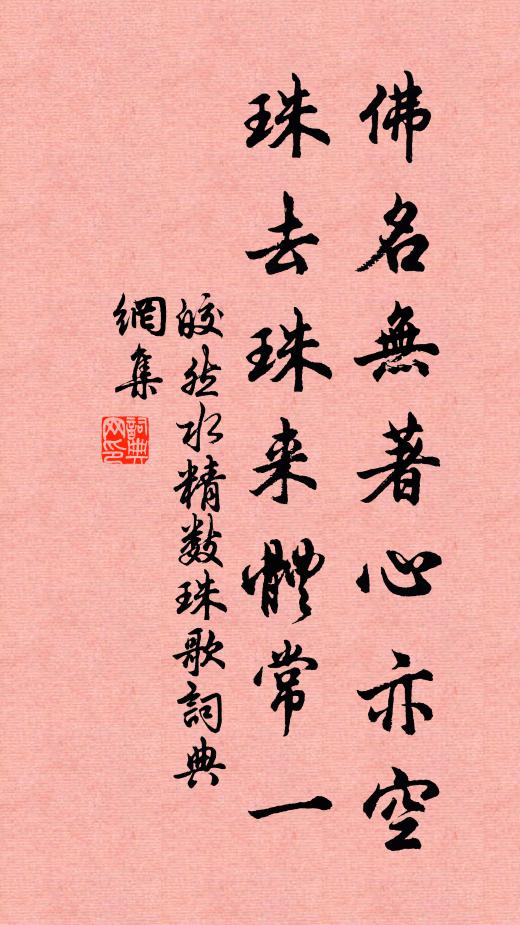 佛名無著心亦空
珠去珠来體常一
皎然水精数珠歌詞典
網集
詞典網印